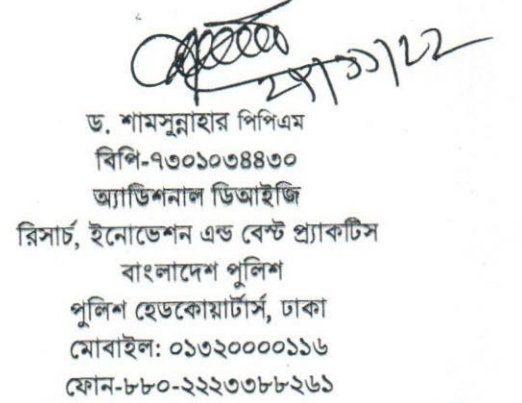 ড. শামসুন্নাহার পিপিএম
বিপি-৭৩০১০৩৪৪৩০
অ্যাডিশনাল ডিআইজি
রিসার্চ, ইনোভেশন এন্ড বেস্ট প্র্যাকটিস
বাংলাদেশ পুলিশ
পুলিশ হেডকোয়ার্টার্স, ঢাকা
মোবাইল: ০১৩২০০০০১১৬
ফোন-৮৮০-২২২৩৩৮৮২৬১